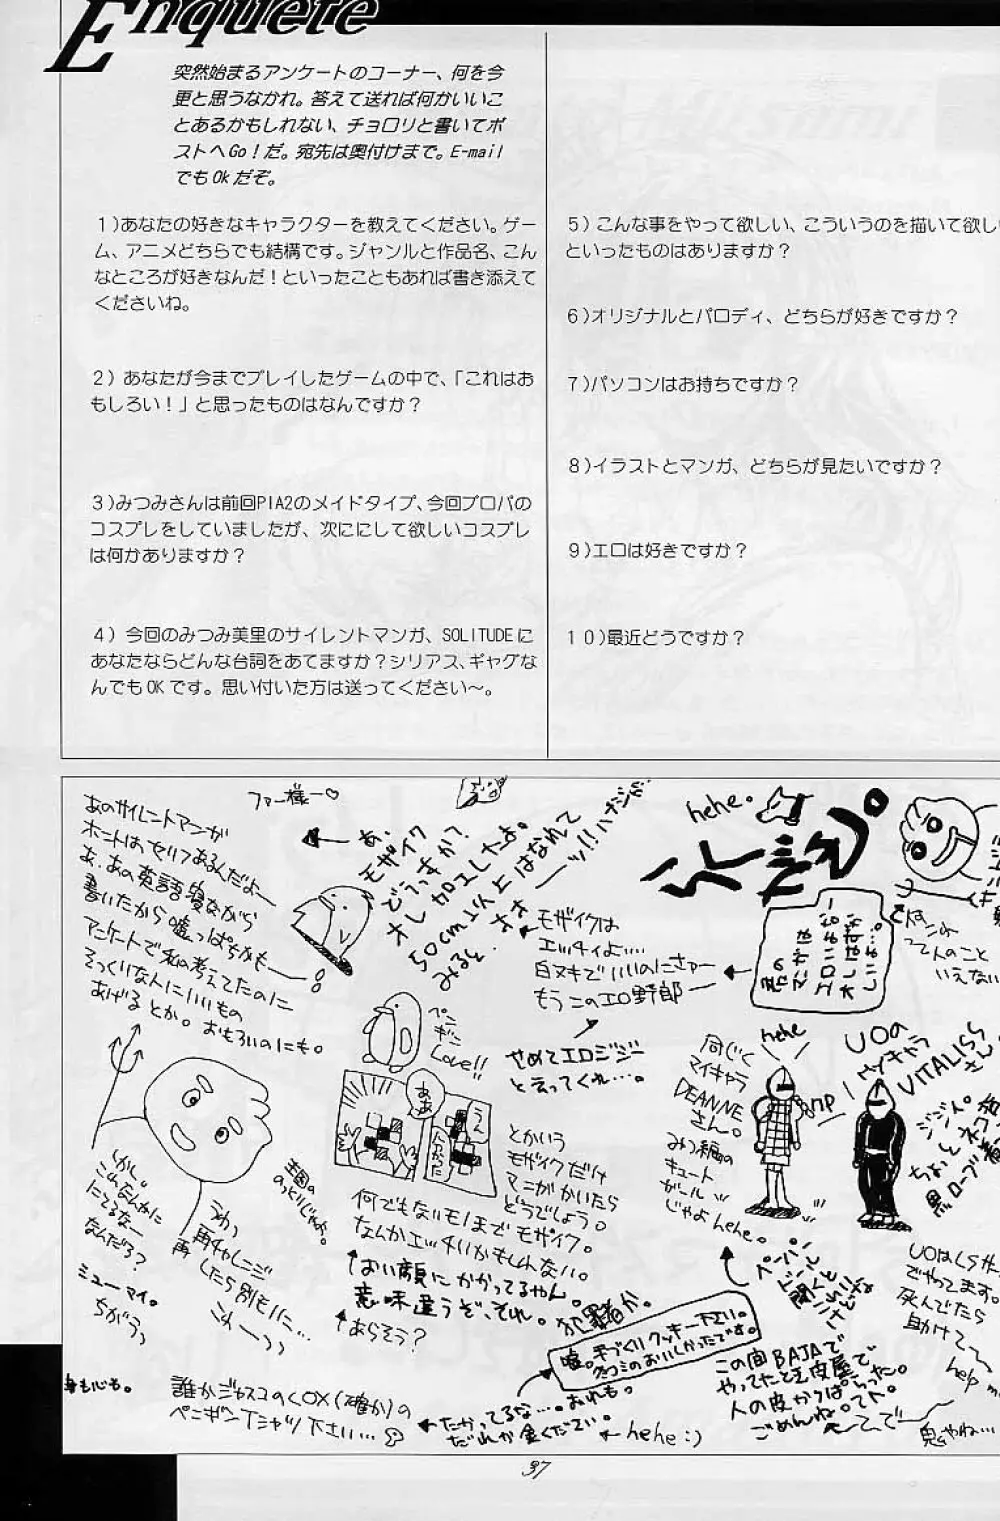 Enquete
突然始まるアンケートのコーナー、何を今
更と思うなかれ。答えて送れば何かいいこ
とあるかもしれない、チョロリと書いてポ
ストへGo!だ。宛先は奥付けまで。E-mail
でもOkだぞ。
1)あなたの好きなキャラクターを教えてください。ゲー
ム、アニメどちらでも結構です。ジャンルと作品名、こん
なところが好きなんだ!といったこともあれば書き添えて
くださいね。
2) あなたが今までプレイしたゲームの中で、「これはお
もしろい!」と思ったものはなんですか?
3)みつみさんは前回PIA2のメイドタイプ、今回プロパの
コスプレをしていましたが、次ににして欲しいコスプレ
は何かありますか?
4) 今回のみつみ美里のサイレントマンガ、SOLITUDEに
あなたならどんな台詞をあてますか?シリアス、ギャグな
んでもOKです。思い付いた方は送ってください〜。
5) こんな事をやって欲しい、こういうのを描いて欲し
といったものはありますか?
6)オリジナルとパロディ、どちらが好きですか?
7)パソコンはお持ちですか?
8)イラストとマンガ、どちらが見たいですか?
9)エロは好きですか?
10)最近どうですか?
あのサイレントマンガ
ホントは、セリフあるんだよー
あ、あの英語寝ながら
書いたから嘘っぱちかも
アンケートで私の考えてたのに
そっくりな人にいいもの
あげるとか。おもろいのにも。
ファー様ー♡
あ、
モザイク
どうっすか?
オレ加工したよ。
50cm以上はなれて
みると
モザイクは
エッチィよ....
白ヌキでいいのにさァー
もうこのエロ野郎
やめてエロジジー
と云ってくれ…。
hehe.
ペン
ギン
Love!!
ああ
とかいう
モザイクだけ
マンガかいたら
どうでしょう。
何でもないモノまでモザイク。
なんかエッチいかもしんない。
↑おい顔にかかってるやん。
意味違うぞ、それ。犯罪者か。
↑あらそう?
しかし。
これなんかに
にてるなー
なんだろ?
ミューマイ。
ちがうっ
王国の
のっとりじゃよ。
うわっ
再チャレンジ
再
したら別もんに…
こわーっっ
同じく
マイキャラ
DEANNE
さん。
みつ編の
キュート
ガール
じゃよhehe。
hehe
UOの
マイキャラ
VITALIS
さん
UOはLS
でやってます。
死んでたら
助けて〜
help me
嘘。手づくりクッキー下さい。
クチコミのおいしかったです。
この間BAJAで
やってたと毛皮屋で
人の皮かっぱらった。
ごめんね。
鬼やね…
身も心も。
誰かジャスコのCOX(確か)の
ペンギンTシャツ下さい…
←たかってるな…。おれも。
だれか金ください。
←hehe:)
37